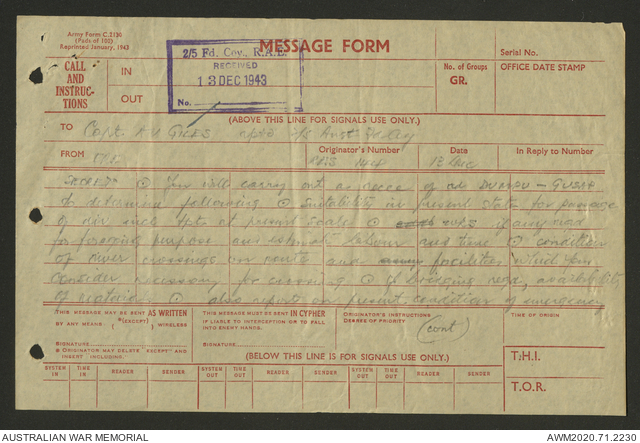 Army Form C.2136
(Pads of 100)
Reprinted January, 1943
MESSAGE FORM
Serial No.
CALL AND INSTRUCTIONS
IN
OUT
2/5 Fd. Coy., R.A.E.
RECEIVED
13 DEC 1943
No.
No. of Groups
GR.
OFFICE DATE STAMP
(ABOVE THIS LINE FOR SIGNALS USE ONLY.)
TO Capt.
FROM Originator's Number Date In Reply to
13 Dec
You will carry out a recce of rd DUMPU - GUSAP
to determine following suitability in present state for passage
of div incl tpt at present scale if any reqd
for foregoing purpose and estimate labour and time condition
of river crossings on route and facilities which you
consider necessary for crossing if bridging reqd, availability
of materials also report on present condition of emergency
THIS MESSAGE MAY BE SENT AS WRITTEN
BY ANY MEANS (EXCEPT) WIRELESS
SIGNATURE
ORIGINATOR MAY DELETE "EXCEPT" AND
INSERT INCLUDING.
THIS MESSAGE MUST BE SENT IN CYPHER
IF LIABLE TO INTERCEPTION OR TO FALL
INTO ENEMY HANDS.
SIGNATURE
ORIGINATOR'S INSTRUCTIONS
DEGREE OF PRIORITY
(cont)
TIME OF ORIGIN
(BELOW THIS LINE IS FOR SIGNALS USE ONLY.)
T.H.I.
T.O.R.
SYSTEM IN TIME IN READER SENDER SYSTEM OUT TIME OUT READER SENDER SYSTEM OUT TIME OUT READER SENDER
AUSTRALIAN WAR MEMORIAL
AWM2020.71.2230